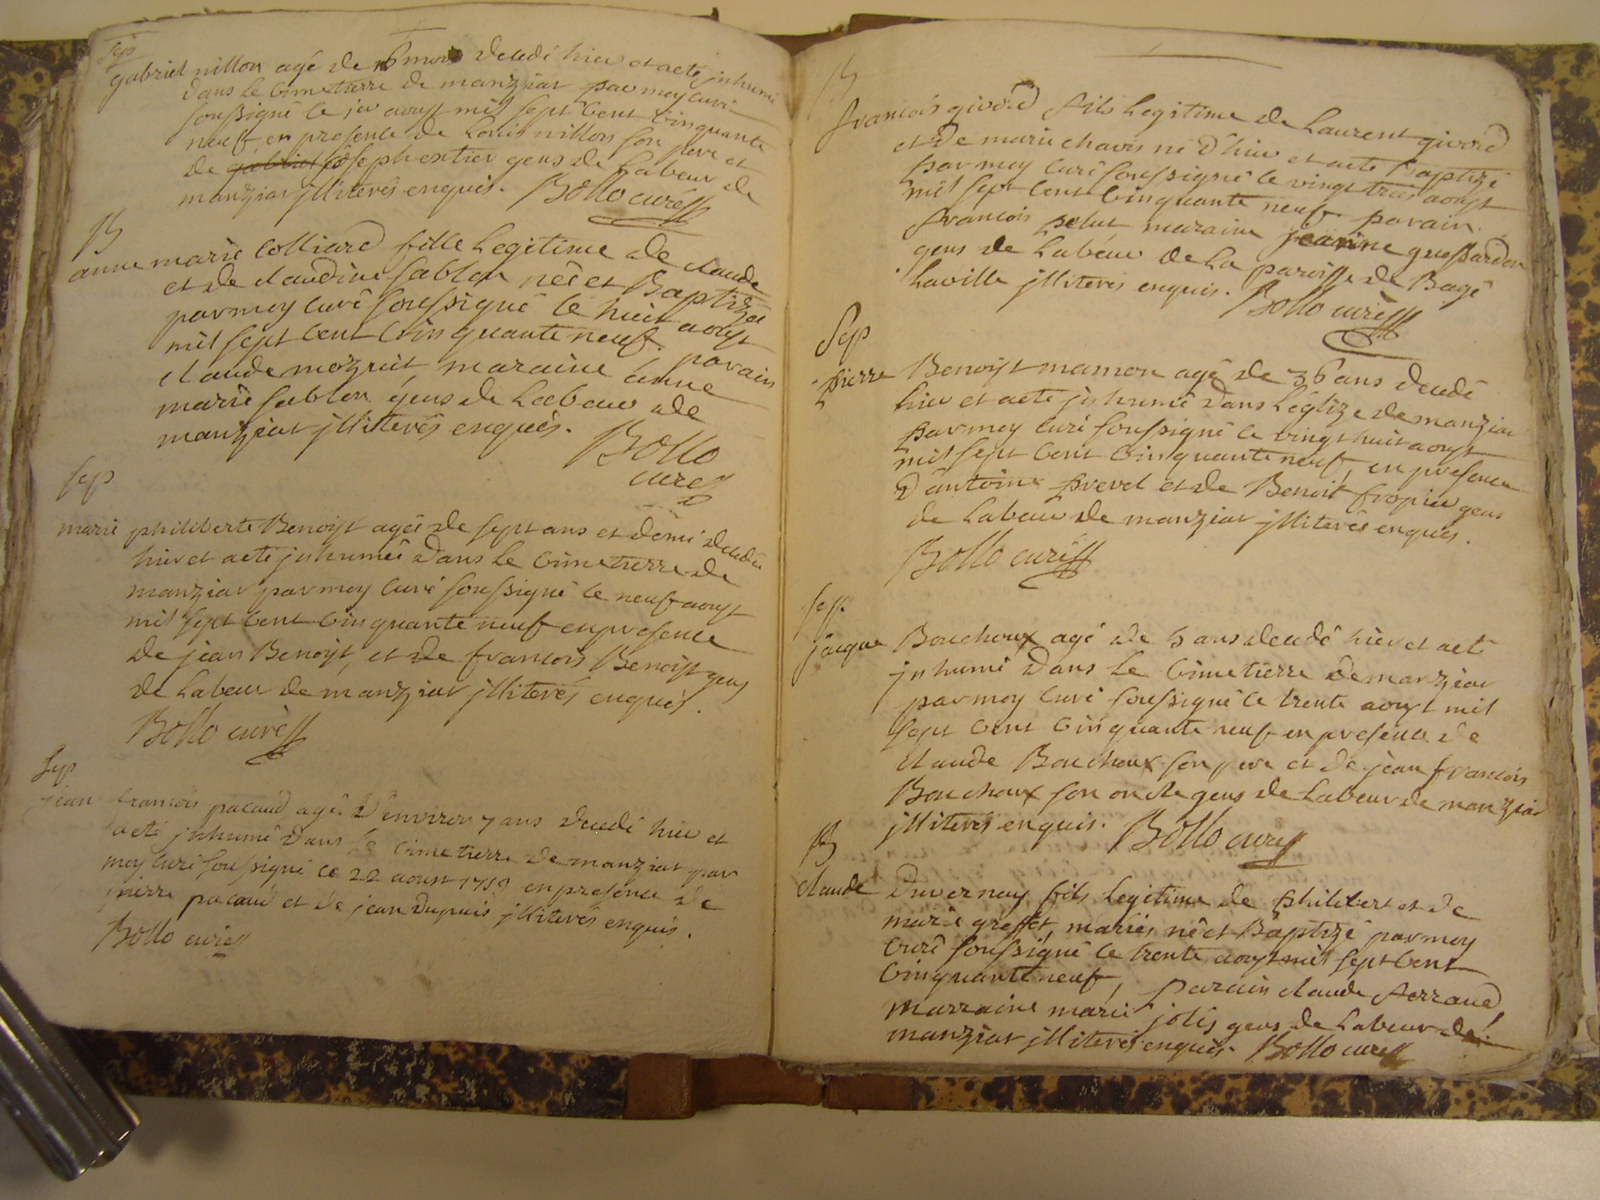 Sep
gabriel nillon agé de 6 mois decedé hier et aeté inhumé
dans le Cimetierre de manziat par moy curé
soussigné le 1er aoust mil sept Cent Cinquante
neuf, en presence de Louis nillon son pere et
de joseph extier gens de Labeur de
manziat jlliterés enquis. Bollo curé
B
anne marie Colliard fille Legitime de claude
et de claudine sablon née et Baptizée
par moy curé soussigné le huit aoust
mil sept Cent Cinquante neuf. parain
claude mozuit, maraine anne
marie sablon, gens de Labeur de
manziat jlliterés enquis.
Bollo
curé
sep
marie philiberte Benoist agée de sept ans et demi decedée
hier et aeté jnhumée dans le Cimetierre de
manziat par moy Curé soussigné le neuf aoust
mil sept Cent Cinquante neuf en presence
de jean Benoist, et de francois Benoist gens
de Labeur de manziat jlliterés enquis.
Bollo curé
Sep
jean francois pacaud agé d'environ 7 ans decedé hier et
aeté jnhumé dans le Cimetierre de manziat par
moy Curé soussigné ce 22 aoust 1759 en presence de
pierre pacaud et de jean dupuis jlliterés enquis.
Bollo curé
B
francois givord fils Legitime de Laurent givord
et de marie chavis né d'hier et aeté Baptizé
par moy curé soussigné le vingt trois aoust
mil sept Cent Cinquante neuf parain
francois pelut maraine jeanine
gens de Labeur de La paroisse de Bagé
Laville jlliterés enquis. Bollo curé
Sep
pierre Benoist mamon agé de 36 ans decedé
hier et aeté jnhumé dans L'églize de manziat
par moy Curé soussigné le vingt huit aoust
mil sept Cent Cinquante neuf, en presence
d'antoine prevel et de Benoit fropier gens
de Labeur de manziat jlliterés enquis.
Bollo curé
sep
jacque Bouchoux agé de 5 ans decedé hier et aeté
jnhumé dans le Cimetierre de manziat
par moy Curé soussigné le trente aoust mil
sept Cent Cinquante neuf en presence de
claude Bouchoux son pere et de jean francois
Bouchoux son oncle gens de Labeur de manziat
jlliterés enquis. Bollo curé
B
claude duvernay fils Legitime de philibert et de
marie greffet, mariés, né et Baptizé par moy
Curé soussigné le trente aoust mil sept Cent
Cinquante neuf, parain claude ferraud,
marraine marie jolis gens de Labeur de
manziat jlliterés enquis. Bollo curé